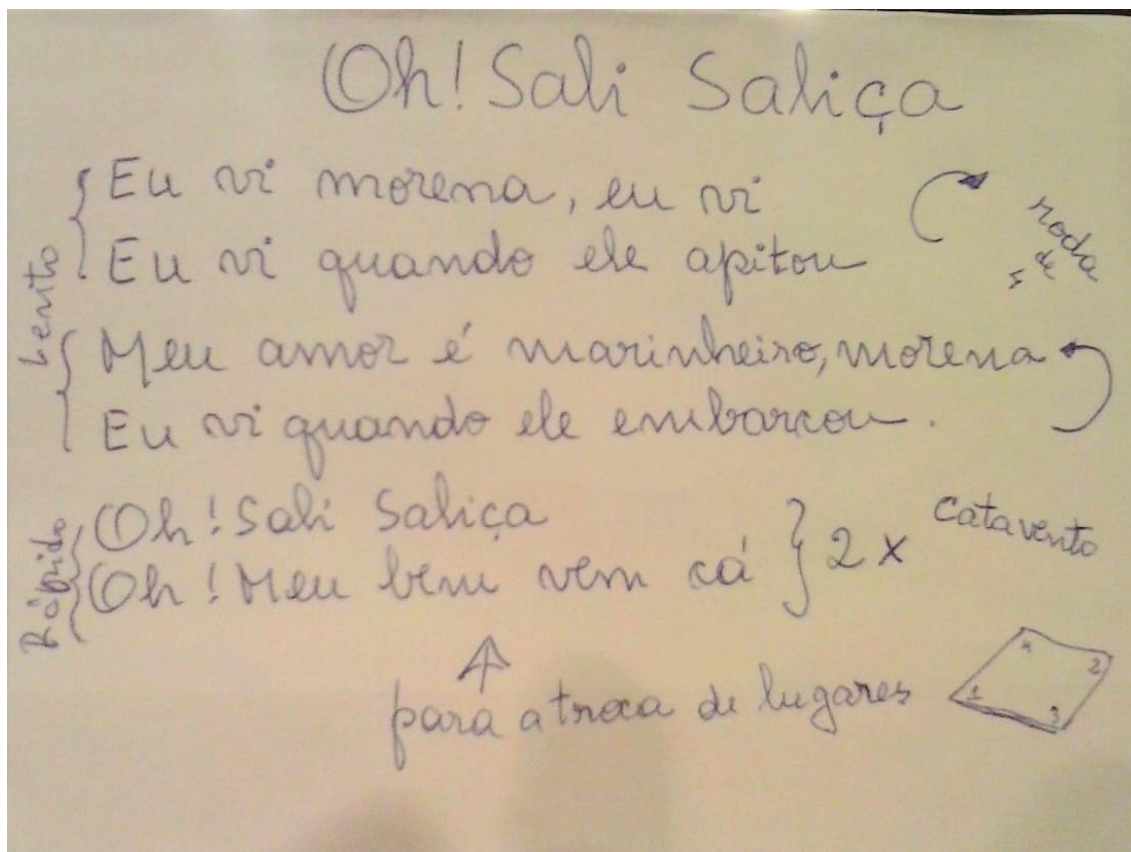 Oh! Sali Saliça
Lento
Eu vi morena, eu vi
Eu vi quando ele apitou
roda
de
4
Meu amor é marinheiro, morena
Eu vi quando ele embarcou.
Rápido
Oh! Sali Saliça
Oh! Meu bem vem cá
2x
Catavento
para a troca de lugares
4
2
1
3